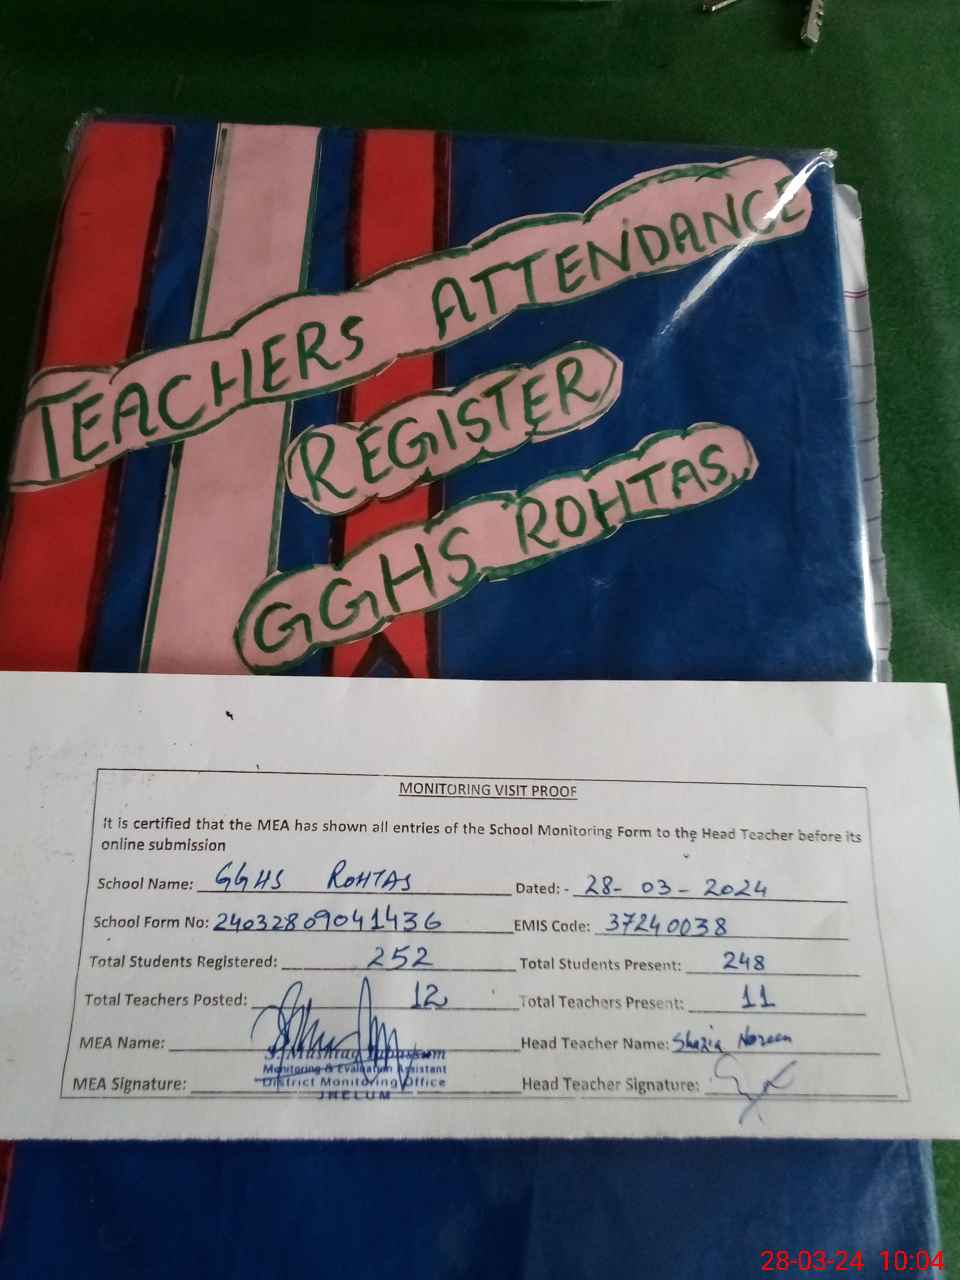 TEACHERS ATTENDANCE
REGISTER
GGHS ROHTAS
MONITORING VISIT PROOF
It is certified that the MEA has shown all entries of the School Monitoring Form to the Head Teacher before its
online submission
School Name: GGHS ROHTAS Dated: - 28-03-2024
School Form No: 24032809041436 EMIS Code: 37240038
Total Students Registered: 252 Total Students Present: 248
Total Teachers Posted: 12 Total Teachers Present: 11
MEA Name: Head Teacher Name: Shazia Noreen
Monitoring & Evaluation Assistant
MEA Signature: District Monitoring Office Head Teacher Signature:
JHELUM
28-03-24 10:04